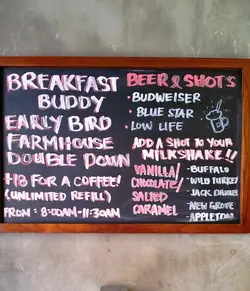 BREAKFAST
BUDDY
EARLY BIRD
FARMHOUSE
DOUBLE DOWN
+18 FOR A COFFEE!
(UNLIMITED REFILL)
FROM: 8:00AM-11:30AM
BEER & SHOTS
• BUDWEISER
• BLUE STAR
• LOW LIFE
ADD A SHOT TO YOUR
MILKSHAKE!!
VANILLA/
CHOCOLATE/
SALTED
CARAMEL
- BUFFALO
- WILD TURKEY
- JACK DANIELS
- NEW GROVE
- APPLETON